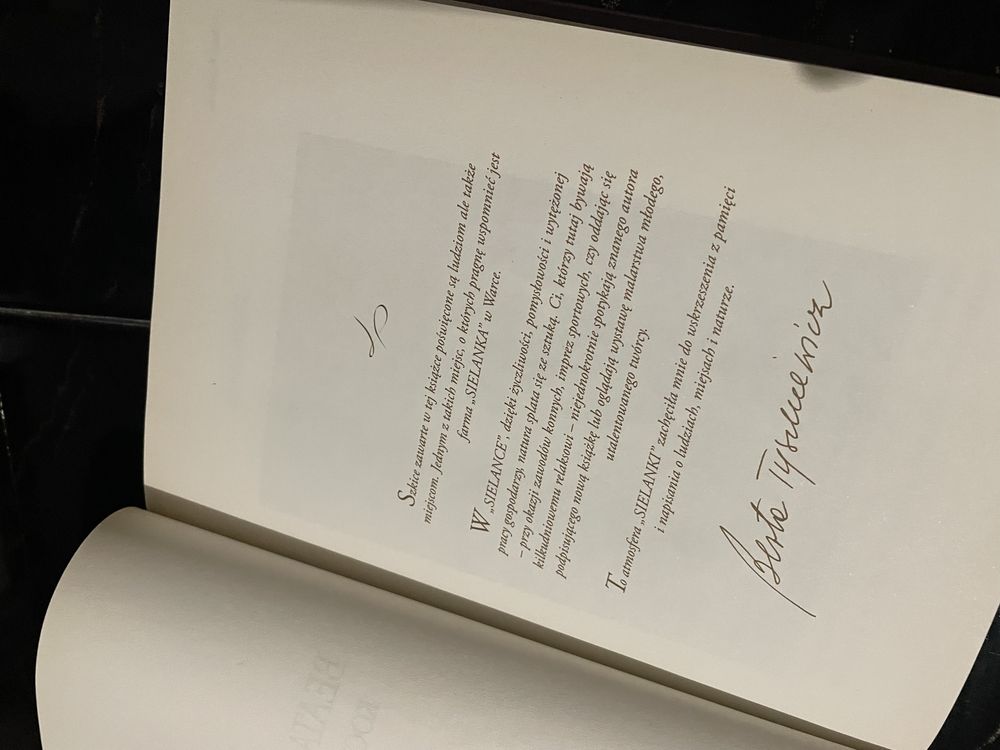 Szkice zawarte w tej książce poświęcone są ludziom ale także
miejscom. Jednym z takich miejsc, o których pragnę wspomnieć jest
farma „SIELANKA” w Warce.
W „SIELANCE”, dzięki życzliwości, pomysłowości i wytężonej
pracy gospodarzy, natura splata się ze sztuką. Ci, którzy tutaj bywają
– przy okazji zawodów konnych, imprez sportowych, czy oddając się
kilkudniowemu relaksowi – niejednokrotnie spotykają znanego autora
podpisującego nową książkę lub oglądają wystawę malarstwa młodego,
utalentowanego twórcy.
To atmosfera „SIELANKI” zachęciła mnie do wskrzeszenia z pamięci
i napisania o ludziach, miejsach i naturze.
Beata Tyszkiewicz